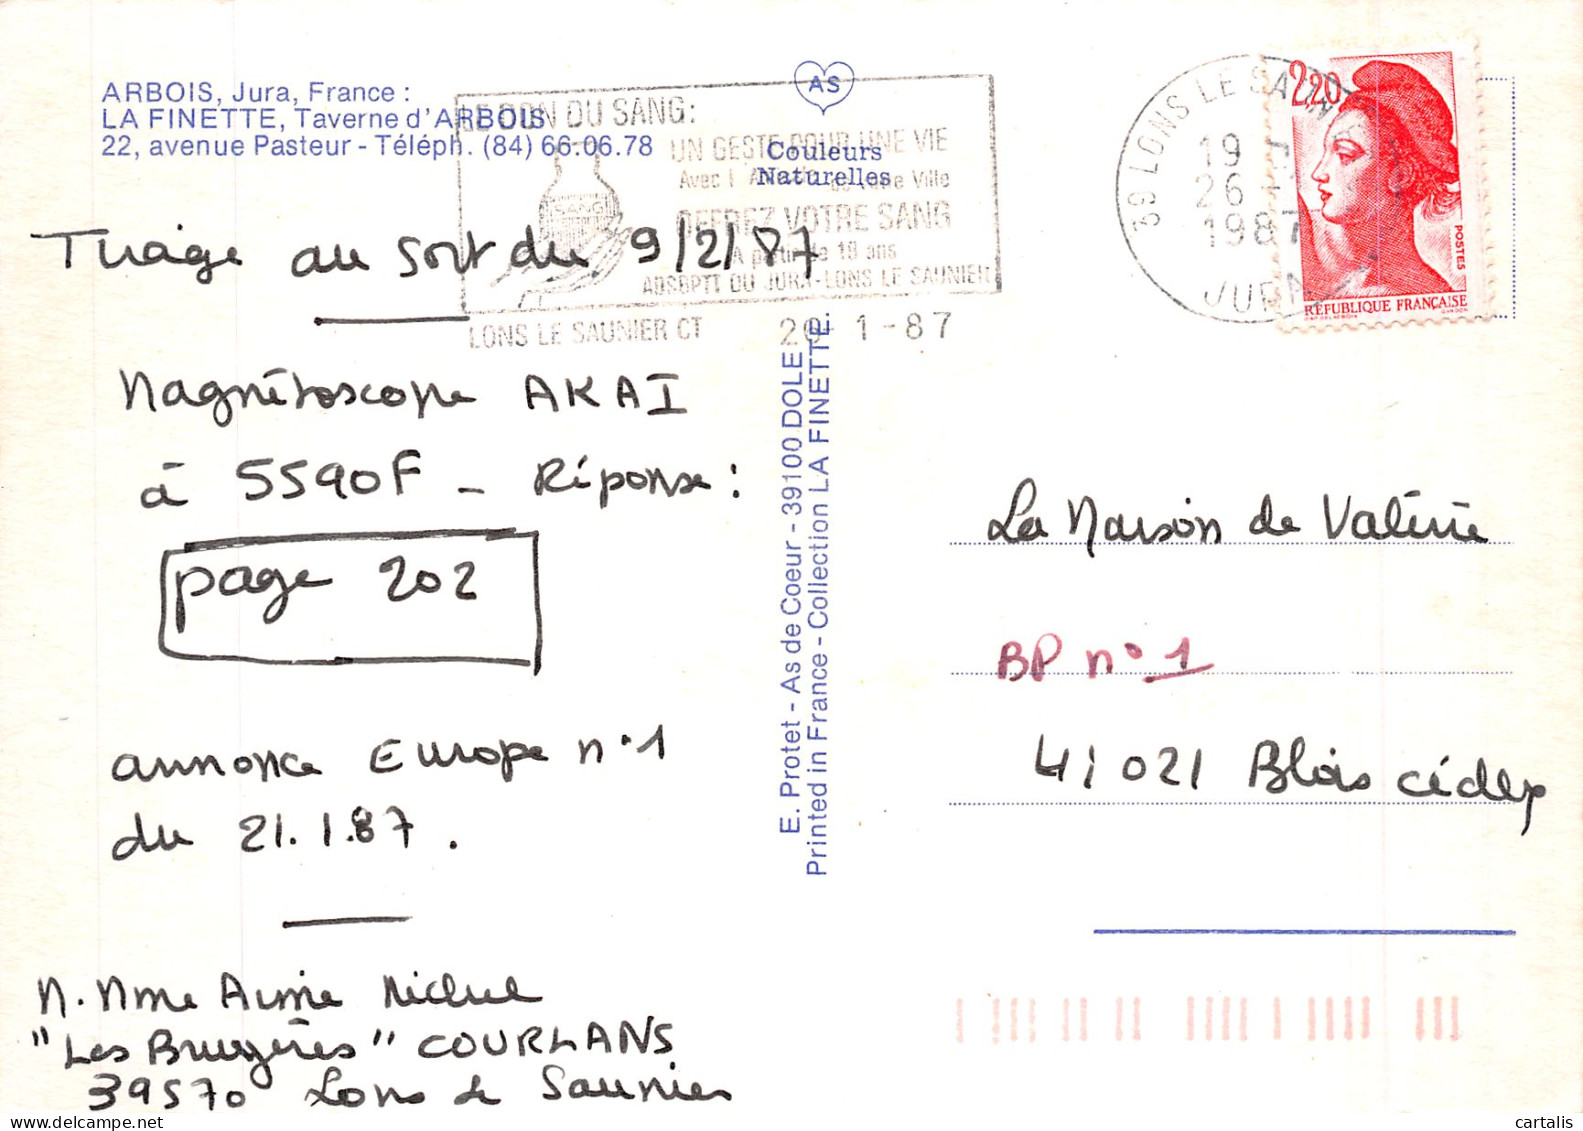 ARBOIS, Jura, France :
LA FINETTE, Taverne d'ARBOIS
22, avenue Pasteur - Téléph. (84) 66.06.78
AS
Couleurs
Naturelles
LE DON DU SANG:
UN GESTE POUR UNE VIE
Avec Ville
OFFREZ VOTRE SANG
A partir de 18 ans
ADSBPTT DU JURA-LONS LE SAUNIER
SANG
LONS LE SAUNIER CT 1-87
39 LONS LE SAUNIER
19
26
1987
JURA
2,20
POSTES
RÉPUBLIQUE FRANÇAISE
GANDON
Tirage au sort du 9/2/87
Magnétoscope AKAI
à 5590F - Réponse :
page 202
annonce Europe n°1
du 21.1.87.
M. Mme Aimé Michel
"Les Bruyères" COURLANS
39570 Lons le Saunier
E. Protet - As de Coeur - 39100 DOLE
Printed in France - Collection LA FINETTE.
La Maison de Valérie
BP n° 1
41021 Blois cédex
cartalis